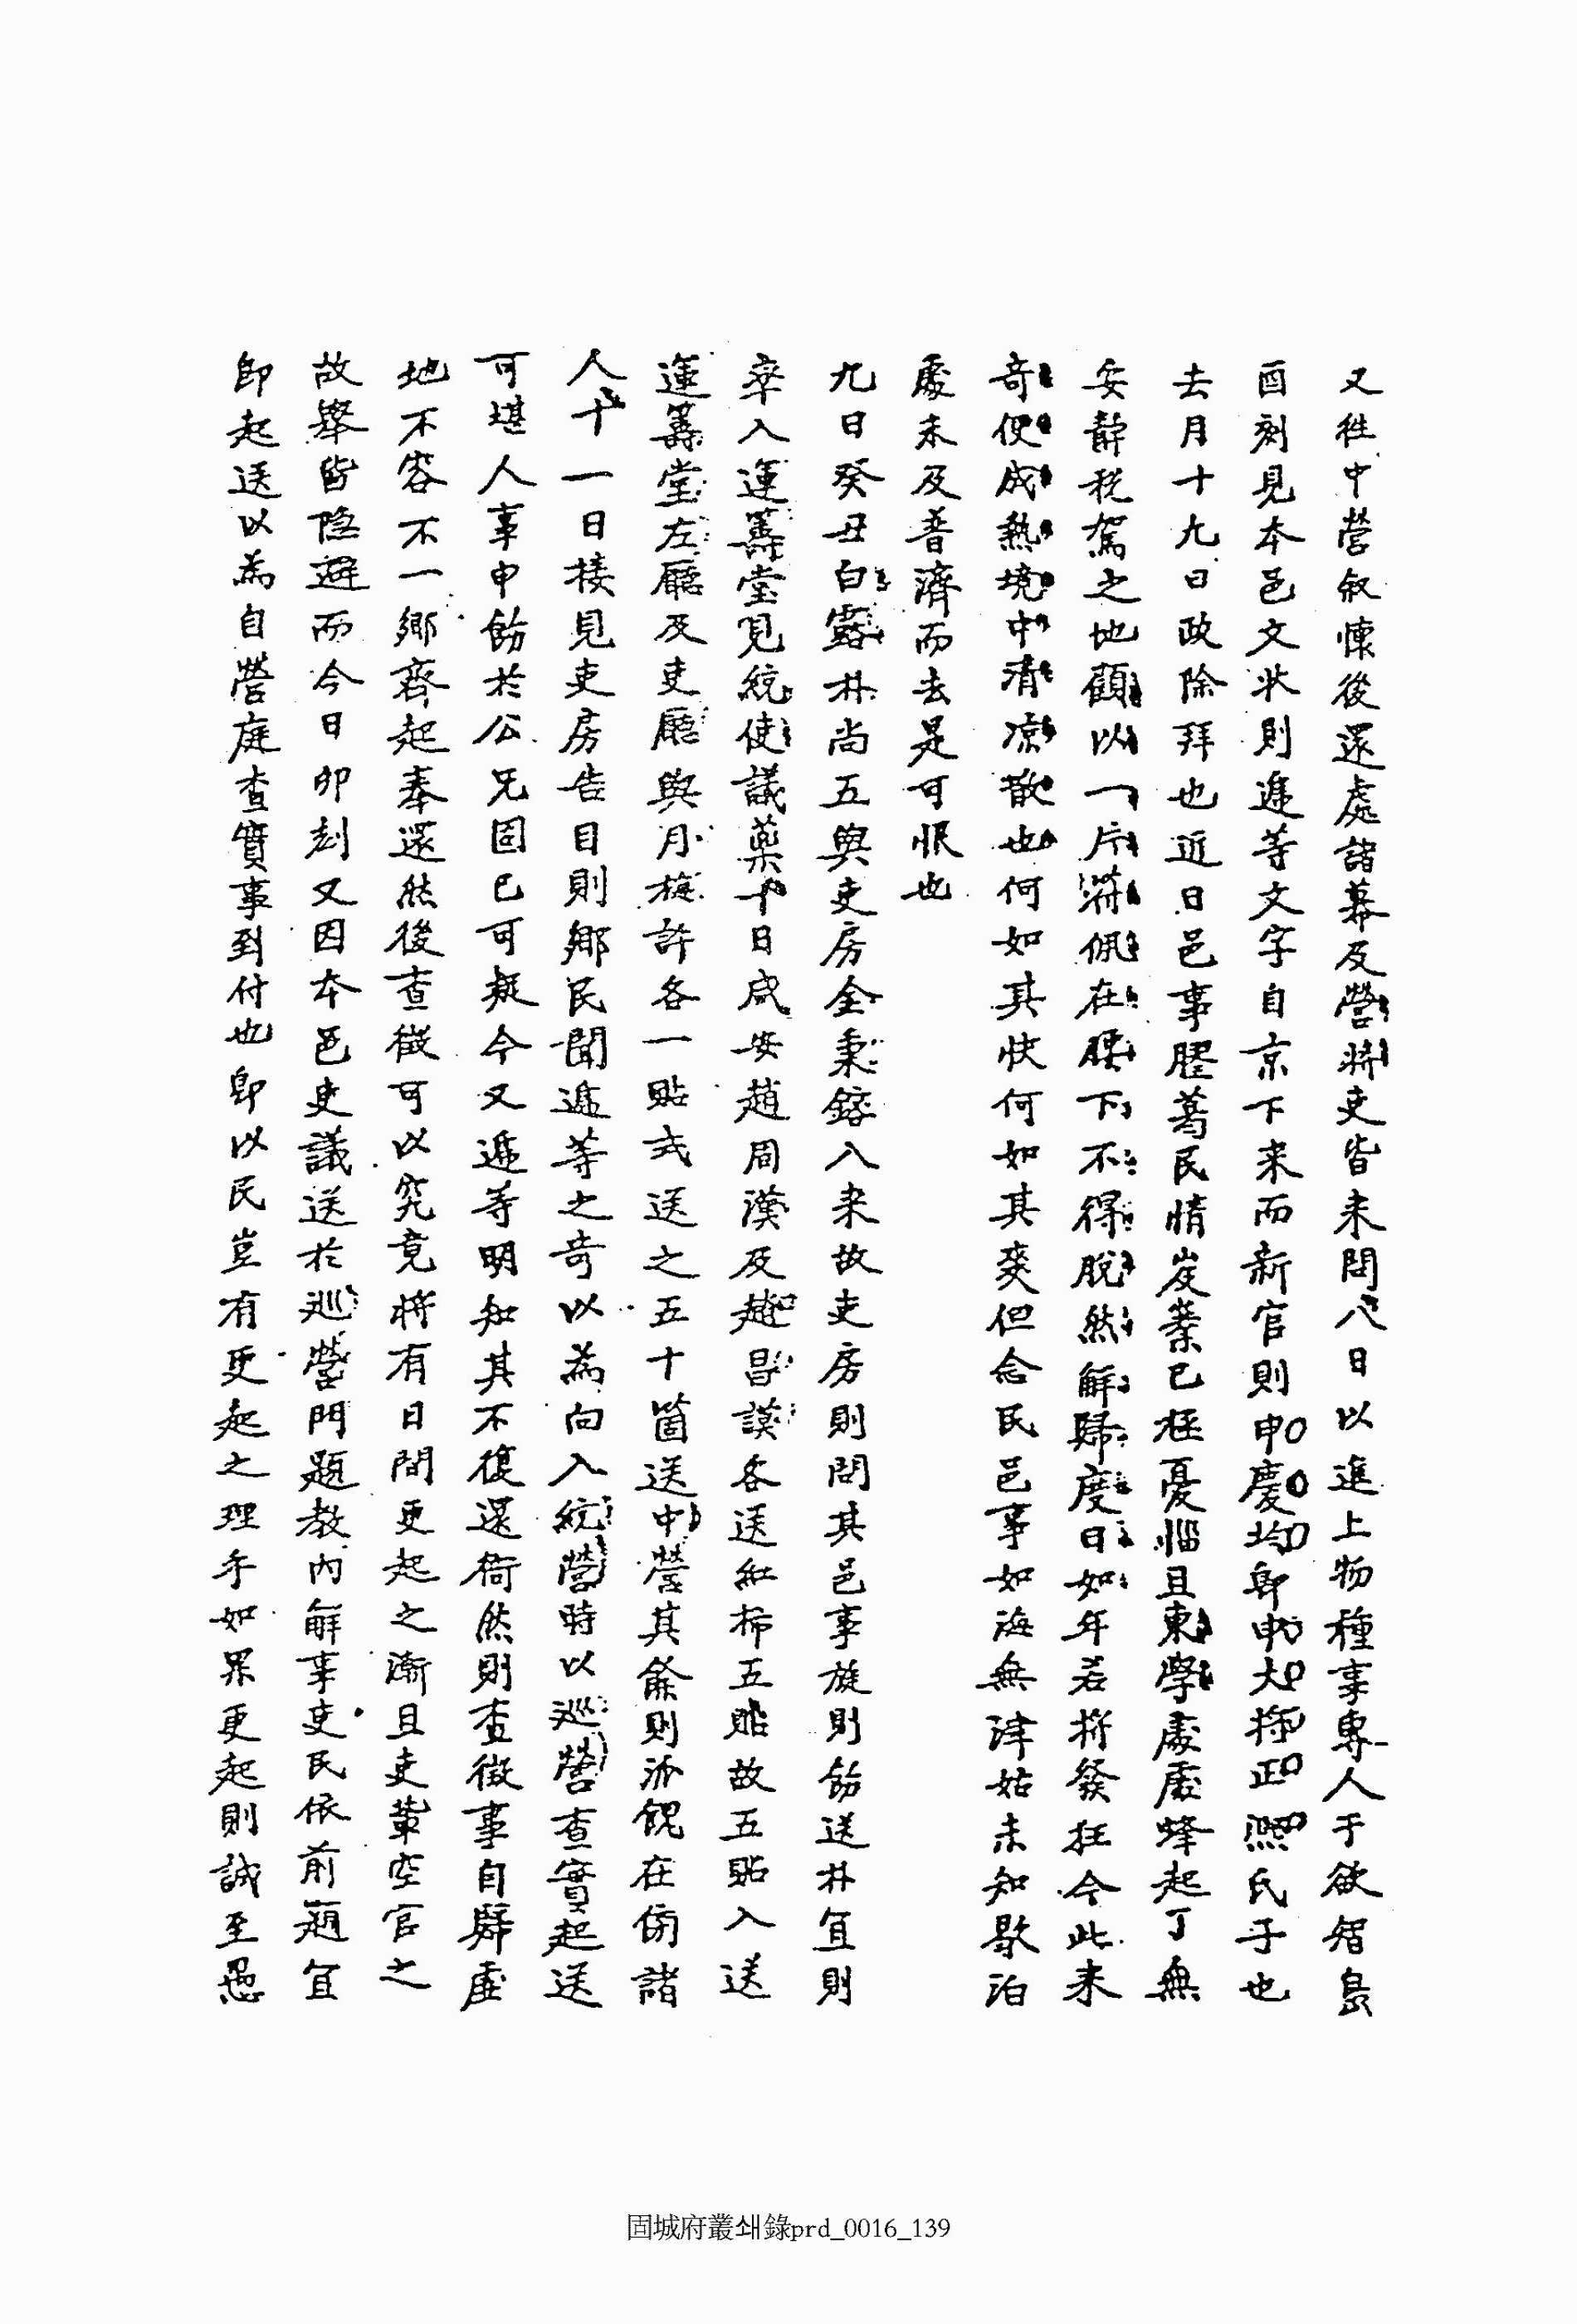 又往中營敍懷後還處諸幕及營將吏皆來問八日以進上物種事專人于欲智島
酉刻見本邑文狀則遞等文字自京下來而新官則申慶均卽申大將正熙氏子也
去月十九日政除拜也近日邑事膠葛民情岌嶪已極憂惱且東學處處蜂起丁無
安靜稅駕之地顧以一片符佩在腰下不得脫然解歸度日如年若將發狂今此來
奇便成熱境中淸凉散也何如其快何如其爽但念民邑事如海無津姑未知歇泊
處未及普濟而去是可恨也
九日癸丑白露朴尚五與吏房全秉鎔入來故吏房則問其邑事旋則飭送朴宜則
卒入運籌堂見統使議藥十日咸安趙周漢及趙昌謨各送紅柿五貼故五貼入送
運籌堂左廳及吏廳與月梅許各一貼式送之五十箇送中營其餘則沵餽在傍諸
人十一日接見吏房告目則鄕民聞遞等之奇以爲向入統營時以巡營查實起送
可堪人事申飭於公兄固已可疑今又遞等明知其不復還衙然則查徵事自歸虛
地不容不一鄕齊起奉還然後查徵可以究竟將有日間更起之漸且吏輩空官之
故擧皆隐避而今日卯刻又因本邑吏議送於巡營門題敎內解事吏民依前題宜
卽起送以爲自營庭查實事到付也卽以民豈有更起之理乎如果更起則誠至愚
固城府叢쇄錄prd_0016_139